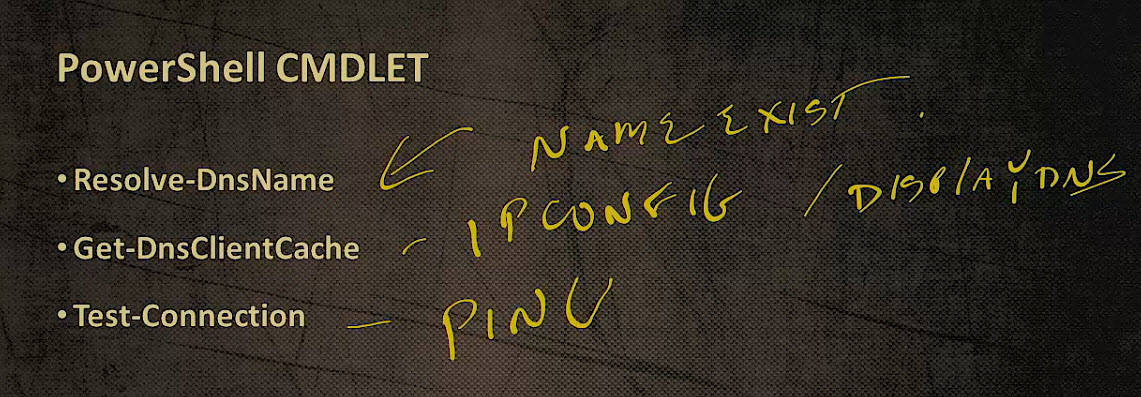 PowerShell CMDLET
• Resolve-DnsName NAME EXIST.
• Get-DnsClientCache - IPCONFIG /DISPLAYDNS
• Test-Connection - PING